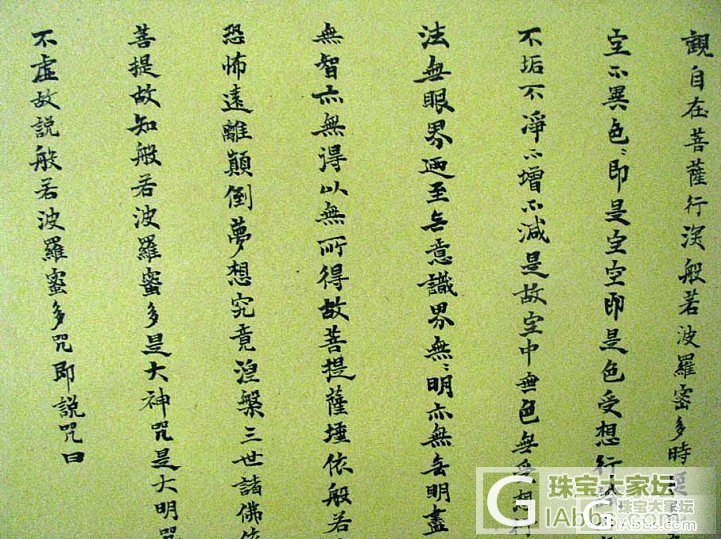 觀自在菩薩行深般若波羅蜜多時
空不異色〻即是空空即是色受想行
不垢不淨不增不減是故空中無色無受想行
法無眼界迺至無意識界無〻明亦無無明盡
無智亦無得以無所得故菩提薩埵依般若
恐怖遠離顛倒夢想究竟涅槃三世諸佛依
菩提故知般若波羅蜜多是大神咒是大明咒
不虛故說般若波羅蜜多咒即說咒曰
珠宝大家坛
GIabbs
珠宝大家坛
Giabbs.com